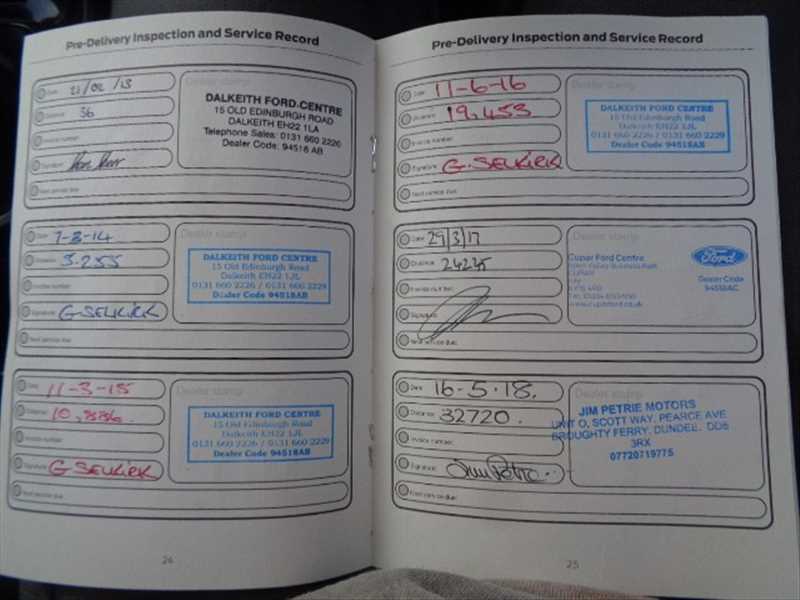 Pre-Delivery Inspection and Service Record
Date 21/02/13
Distance 36
Invoice number
Signature
Next service due
Dealer stamp
DALKEITH FORD CENTRE
15 OLD EDINBURGH ROAD
DALKEITH EH22 1LA
Telephone Sales: 0131 660 2226
Dealer Code: 94518 AB
Date 7-3-14
Distance 5.255
Invoice number
Signature G SELKIRK
Next service due
Dealer stamp
DALKEITH FORD CENTRE
15 Old Edinburgh Road
Dalkeith EH22 1JL
0131 660 2226 / 0131 660 2229
Dealer Code 94518AB
Date 11-3-15
Distance 10,
Invoice number
Signature G SELKIRK
Next service due
Dealer stamp
DALKEITH FORD CENTRE
15 Old Edinburgh Road
Dalkeith EH22 1JL
0131 660 2226 / 0131 660 2229
Dealer Code 94518AB
24
Pre-Delivery Inspection and Service Record
Date 11-6-16
Distance 19,453
Invoice number
Signature G. SELKIRK
Next service due
Dealer stamp
DALKEITH FORD CENTRE
15 Old Edinburgh Road
Dalkeith EH22 1JL
0131 660 2226 / 0131 660 2229
Dealer Code 94518AB
Date 29/3/17
Distance 24245
Invoice number
Signature
Next service due
Dealer stamp
Cupar Ford Centre
Ford
Dealer Code
94518AC
Date 16-5-18.
Distance 32720.
Invoice number
Signature Jim Petrie
Next service due
Dealer stamp
JIM PETRIE MOTORS
UNIT O, SCOTT WAY, PEARCE AVE
BROUGHTY FERRY, DUNDEE, DD5
3RX
07720719775
25